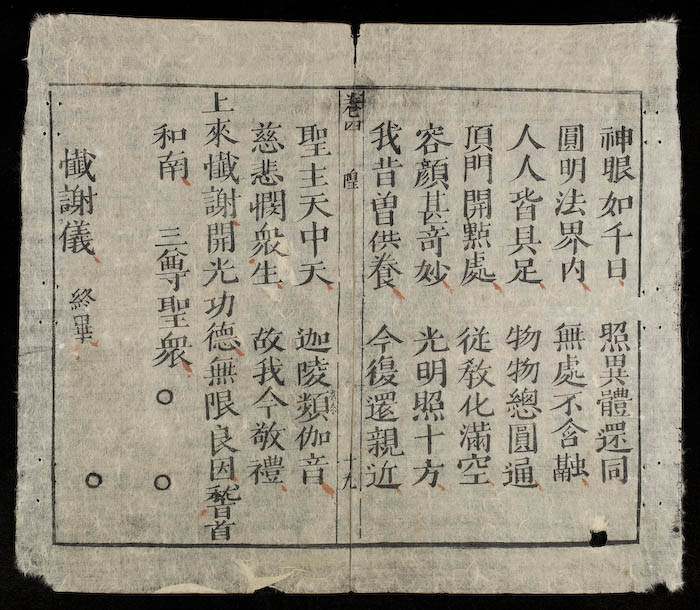 神眼如千日　照異體還同
圓明法界内　無處不含融
人人皆具足　物物總圓通
頂門開點處　從教化滿空
容顏甚奇妙　光明照十方
我昔曽供養　今復還親近
卷四　隍　十九
聖主天中天　迦陵頻伽音
慈悲憫衆生　故我今敬禮
上來懺謝開光功德無限良因稽首
和南　三尊聖衆　○　○
懺謝儀　終畢　○